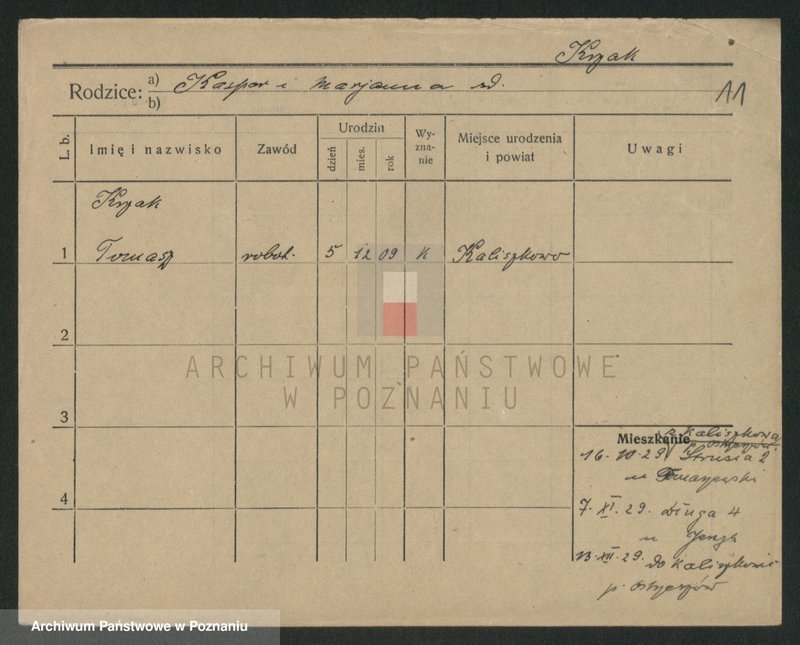 Krzak
Rodzice: a) Kasper i Marjanna zd.
b)
11
L. b. Imię i nazwisko Zawód Urodzin dzień mies. rok Wy-zna-nie Miejsce urodzenia i powiat Uwagi
Krzak
1 Tomasz robot. 5 12 09 K Kaliszkowo
2
ARCHIWUM PAŃSTWOWE
W POZNANIU
3
Mieszkanie z Kaliszkowa
p. Ostrzeszów
16.10.29 Strusia 2
u Tomaszewski
4
7.XI.29. Długa 4
u
13.XII.29. do Kaliszkowic
p. Ostrzeszów
Archiwum Państwowe w Poznaniu